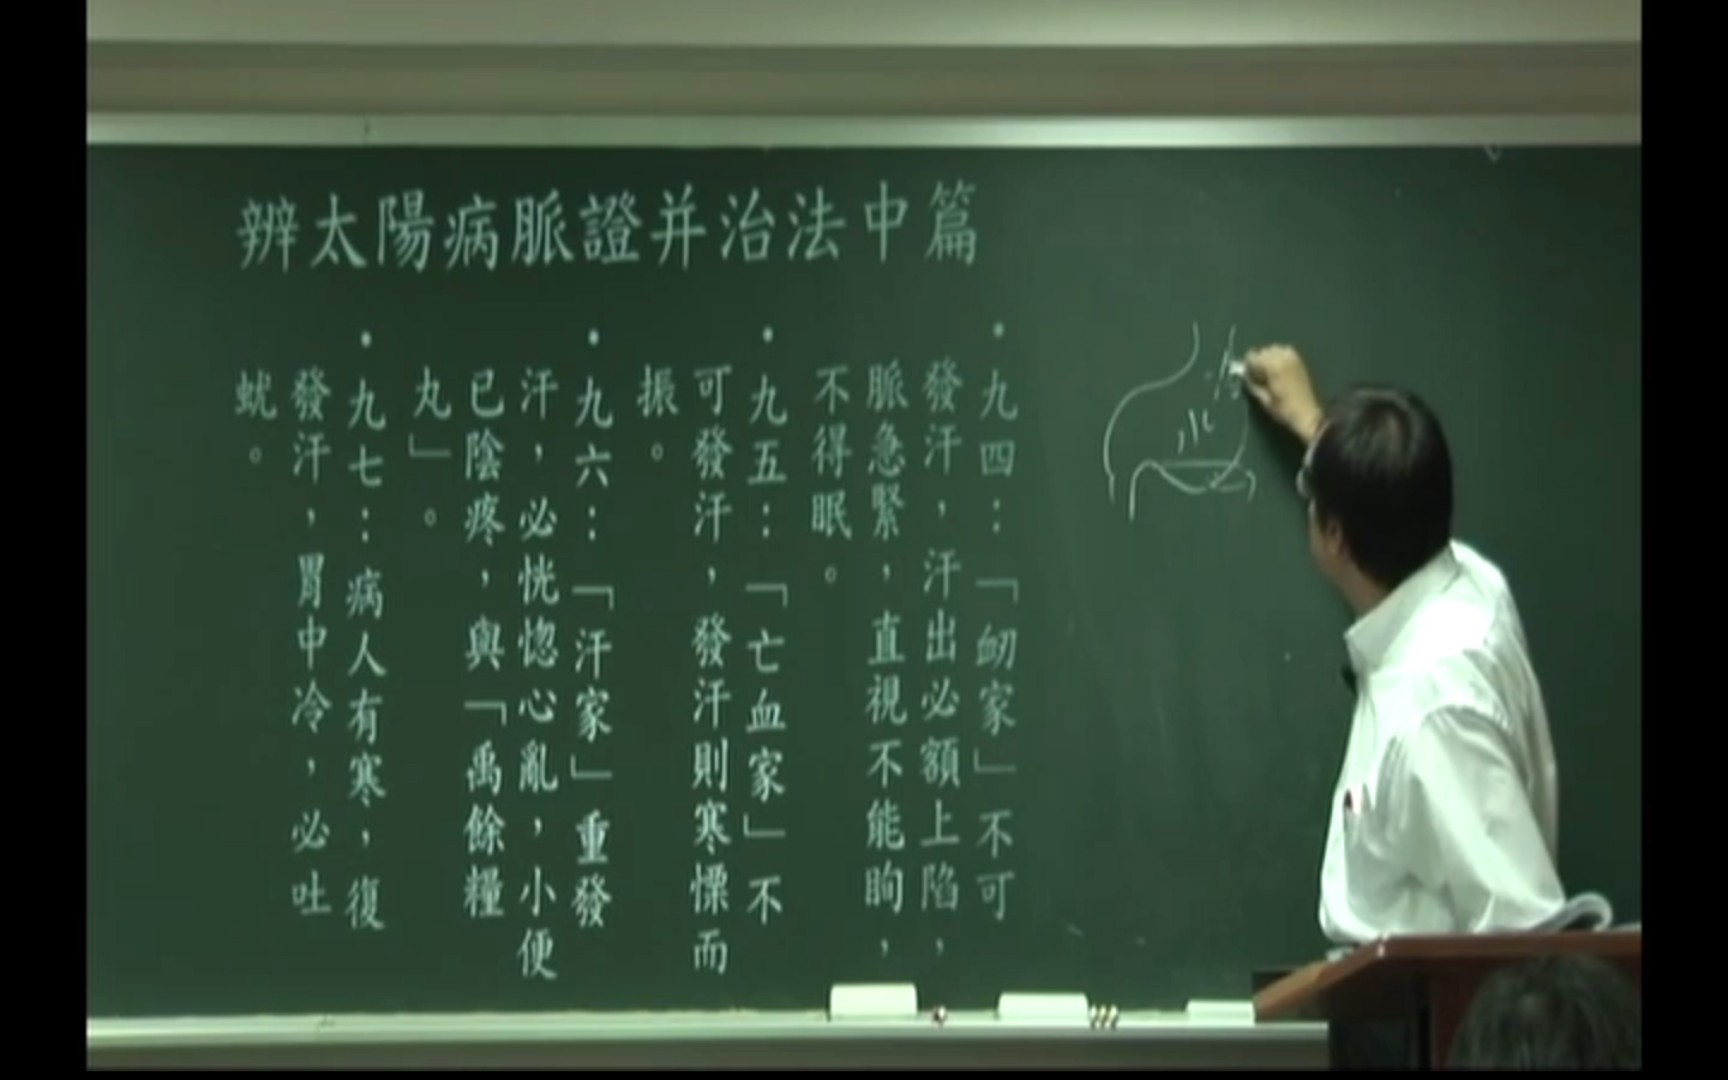 辨太陽病脈證并治法中篇
•九四：「衂家」不可
發汗，汗出必額上陷，
脈急緊，直視不能眴，
不得眠。
•九五：「亡血家」不
可發汗，發汗則寒慄而
振。
•九六：「汗家」重發
汗，必恍惚心亂，小便
已陰疼，與「禹餘糧
丸」。
•九七：病人有寒，復
發汗，胃中冷，必吐
蚘。
水